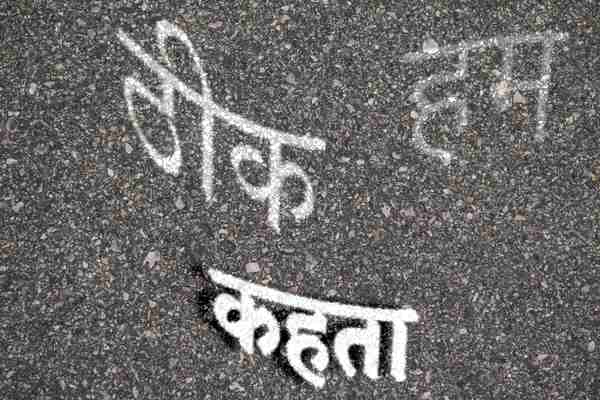 ठीक
हम
कहता